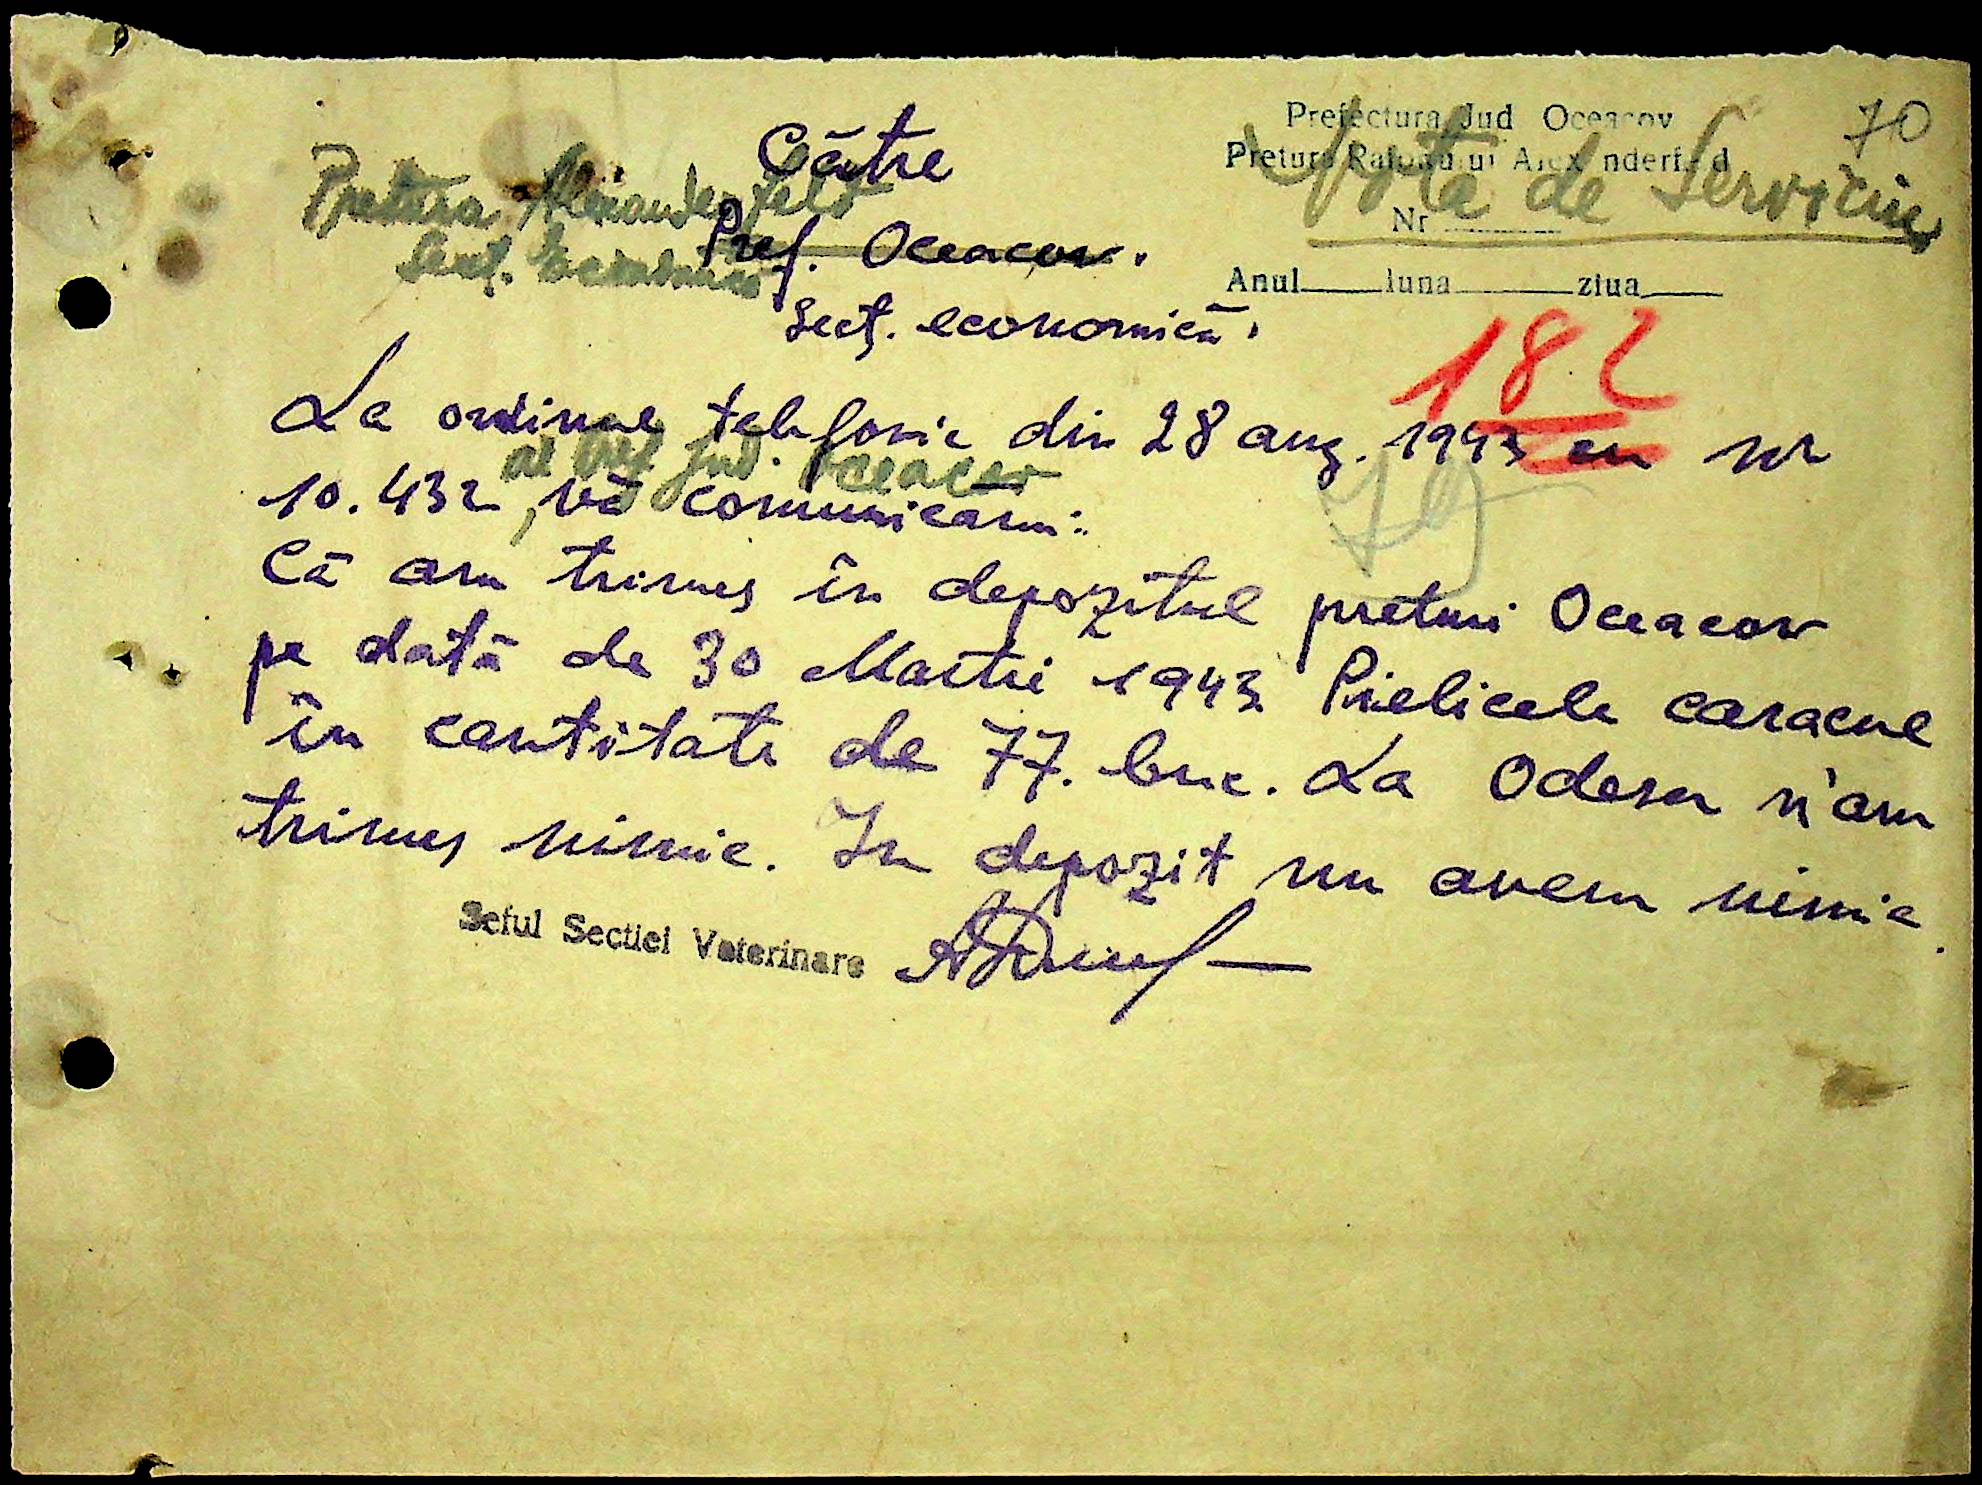 70
Prefectura Jud Oceacov
Pretura Raionului Alexanderfeld
Nota de Serviciu
Nr
Anul luna ziua
Către
Pretura Alexanderfeld
Pref. Oceacov.
Secţ. Economică
Secţ. economică.
182
La ordinul telefonic din 28 aug. 1943 cu nr
al Pref. Jud. Oceacov
10.432, vă comunicăm:
Că am trimes în depozitul preturi Oceacov
pe dată de 30 Martie 1943 Pielicele caracul
în cantitate de 77. buc. La Odesa n'am
trimes nimic. In depozit nu avem nimic.
Seful Sectiei Veterinare